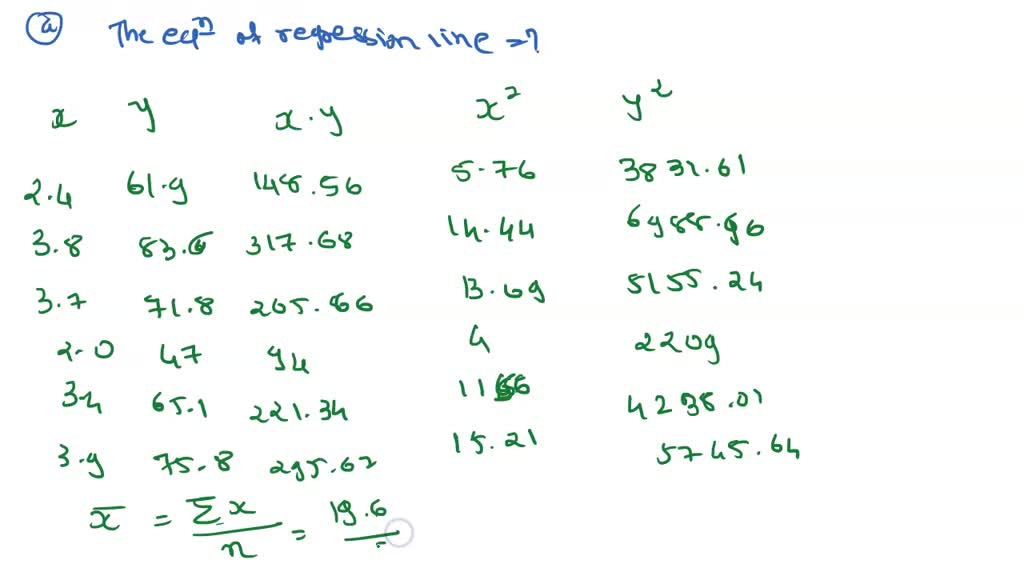 a The eqn of regression line =?
x y x·y x² y²
2.4 61.9 148.56 5.76 3831.61
3.8 83.6 317.68 14.44 6988.96
3.7 71.8 265.66 13.69 5155.24
2.0 47 94 4 2209
3.4 65.1 221.34 4238.01
3.9 75.8 295.62 15.21 5745.64
x̄ = Σx / n = 19.6